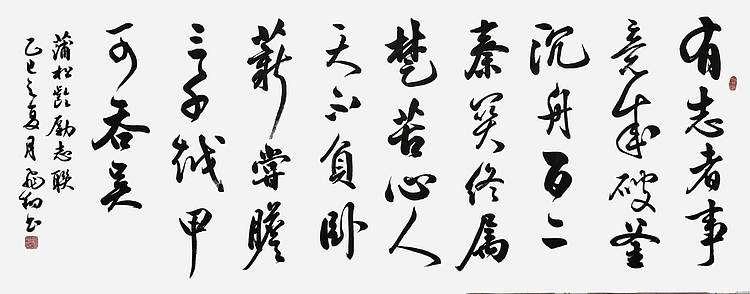 有志者事
竟成破釜
沉舟百二
秦关终属
楚苦心人
天不負卧
薪嘗膽
三千越甲
可吞吴
蒲松龄励志联
乙巳之夏月书